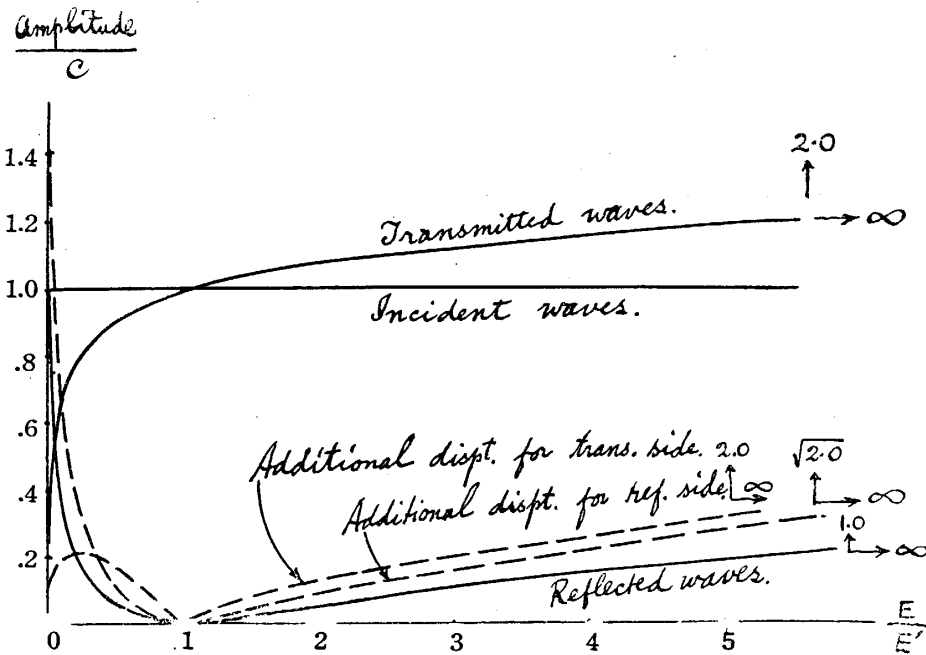 Amplitude
C
1.4
2.0
Transmitted waves.
∞
1.2
1.0
Incident waves.
.8
.6
Additional dispt. for trans. side. 2.0
√2.0
∞
.4
Additional dispt. for ref. side
∞
1.0
.2
Reflected waves.
∞
0 .1 2 3 4 5
E
E'